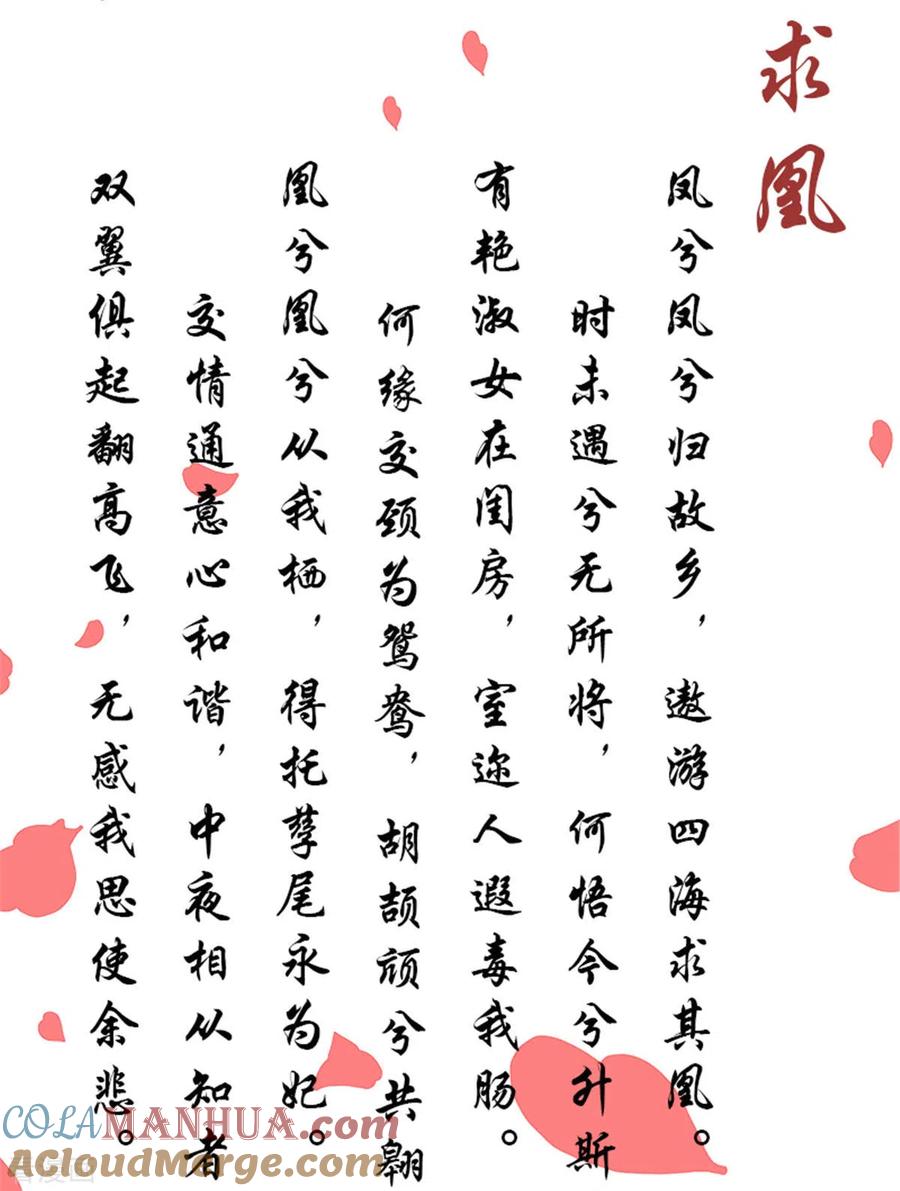 求凰
凤兮凤兮归故乡，遨游四海求其凰。
时未遇兮无所将，何悟今兮升斯
有艳淑女在闺房，室迩人遐毒我肠。
何缘交颈为鸳鸯，胡颉颃兮共翱
凰兮凰兮从我栖，得托孳尾永为妃。
交情通意心和谐，中夜相从知者
双翼俱起翻高飞，无感我思使余悲。
COLAMANHUA.COM
ACloudMerge.com